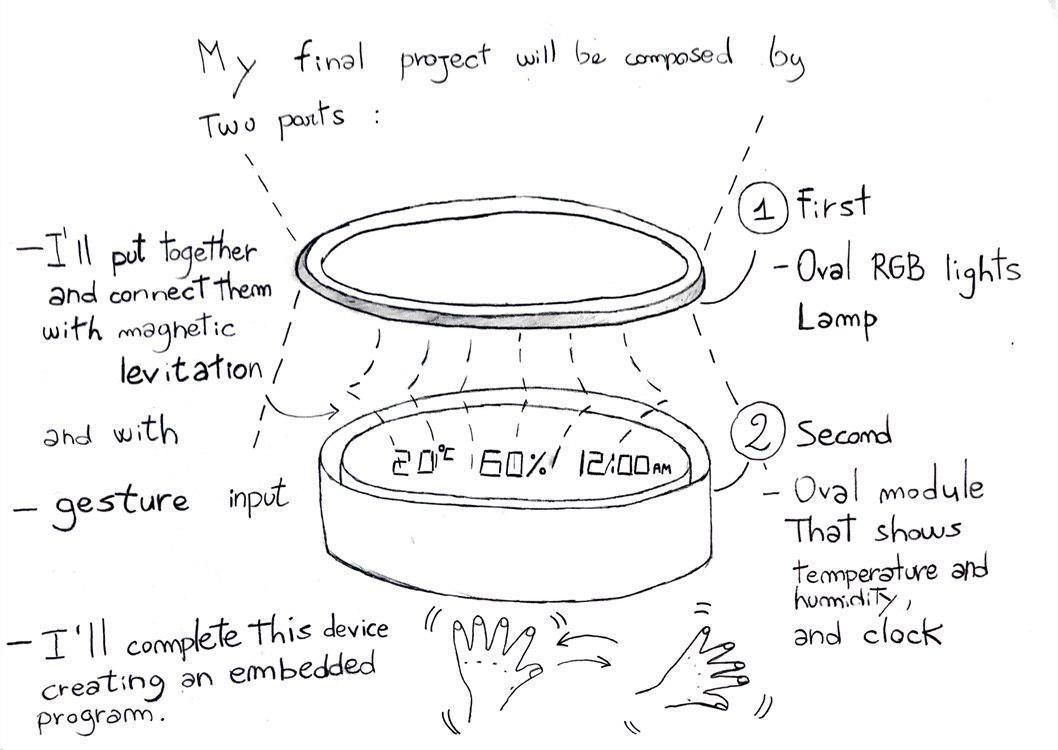 My final project will be composed by
Two parts :
1 First
- Oval RGB lights
Lamp
- I'll put together
and connect them
with magnetic
levitation
and with
- gesture input
20°C 60% 12:00 AM
2 Second
- Oval module
That shows
temperature and
humidity,
and clock
- I'll complete this device
creating an embedded
program.